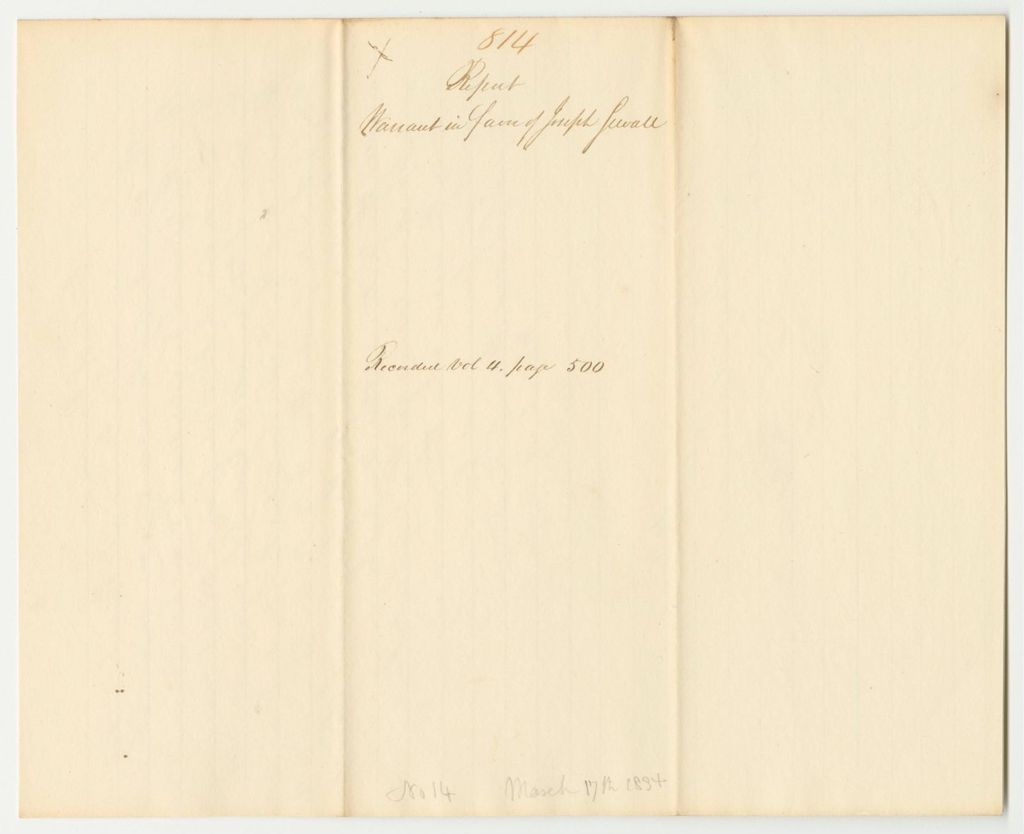 814
Report
Warrant in favor of Joseph Sewall
Recorded Vol 4. page 500
No 14 March 17th 1834